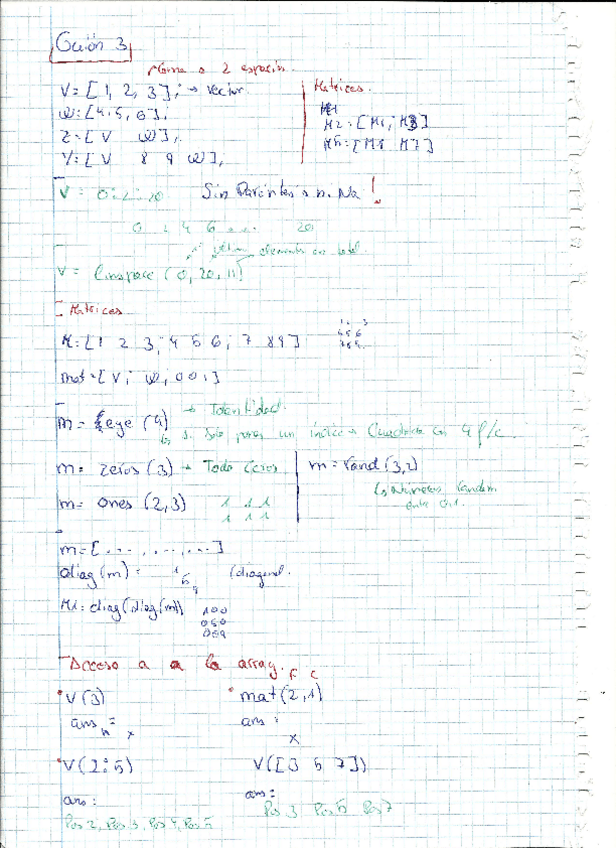 Guión 3
coma o 2 espacios.
V = [1, 2, 3]; → vector.
W = [4, 5, 6];
Z = [V W];
Y = [V 8 9 W];
Matrices.
M2 = [M1; M3]
V = 0:2:20 Sin Paréntesis n. Na !
0 2 4 6 ... 20
elementos en total.
V = linspace (0, 20, 11)
Matrices
M = [1 2 3; 4 5 6; 7 8 9]
1 2 3
4 5 6
7 8 9
mat = [V; W, 0 0 1]
m = eye (4) → Identidad.
↳ Si solo pones un índice → Cuadrada con 4 f/c.
m = zeros (3) → Todo Ceros
m = ones (2,3) 1 1 1
1 1 1
m = rand (3,2)
↳ números random
entre 0,1.
m = [ ... , ... , ... ]
diag (m) = 1
5
9
(diagonal.
M1 = diag (diag(m)) 1 0 0
0 5 0
0 0 9
Acceso a a la array.
F C
V(3)
ans =
x
mat (2,1)
ans :
x
V(2:5)
ans :
Pos 2, Pos 3, Pos 4, Pos 5
V([3 5 7])
ans :
Pos 3 Pos 5 Pos 7